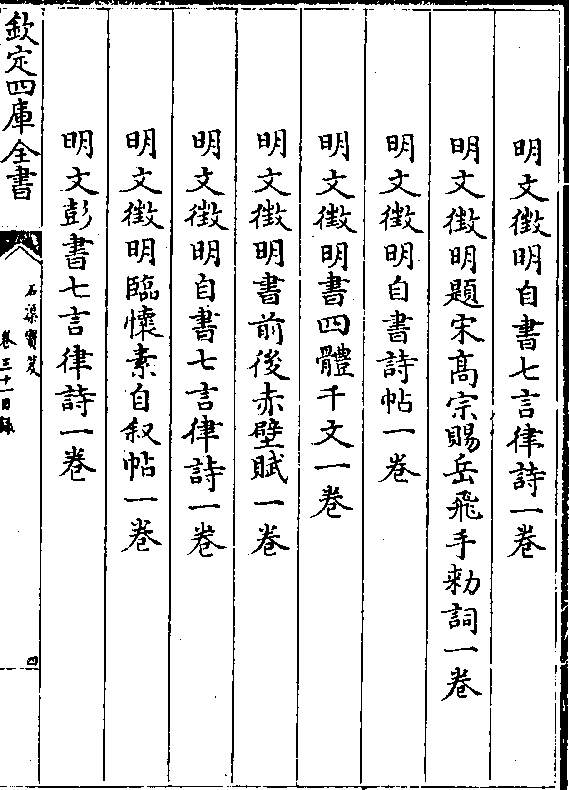 明文徴明自書七言律詩一卷
明文徴明題宋髙宗賜岳飛手勅詞一卷
明文徴明自書詩帖一卷
明文徴明書四體千文一卷
明文徴明書前後赤壁賦一卷
明文徴明自書七言律詩一卷
明文徴明臨懷素自叙帖一卷
明文彭書七言律詩一卷
欽定四庫全書
石渠寶笈
卷三十一目録
四